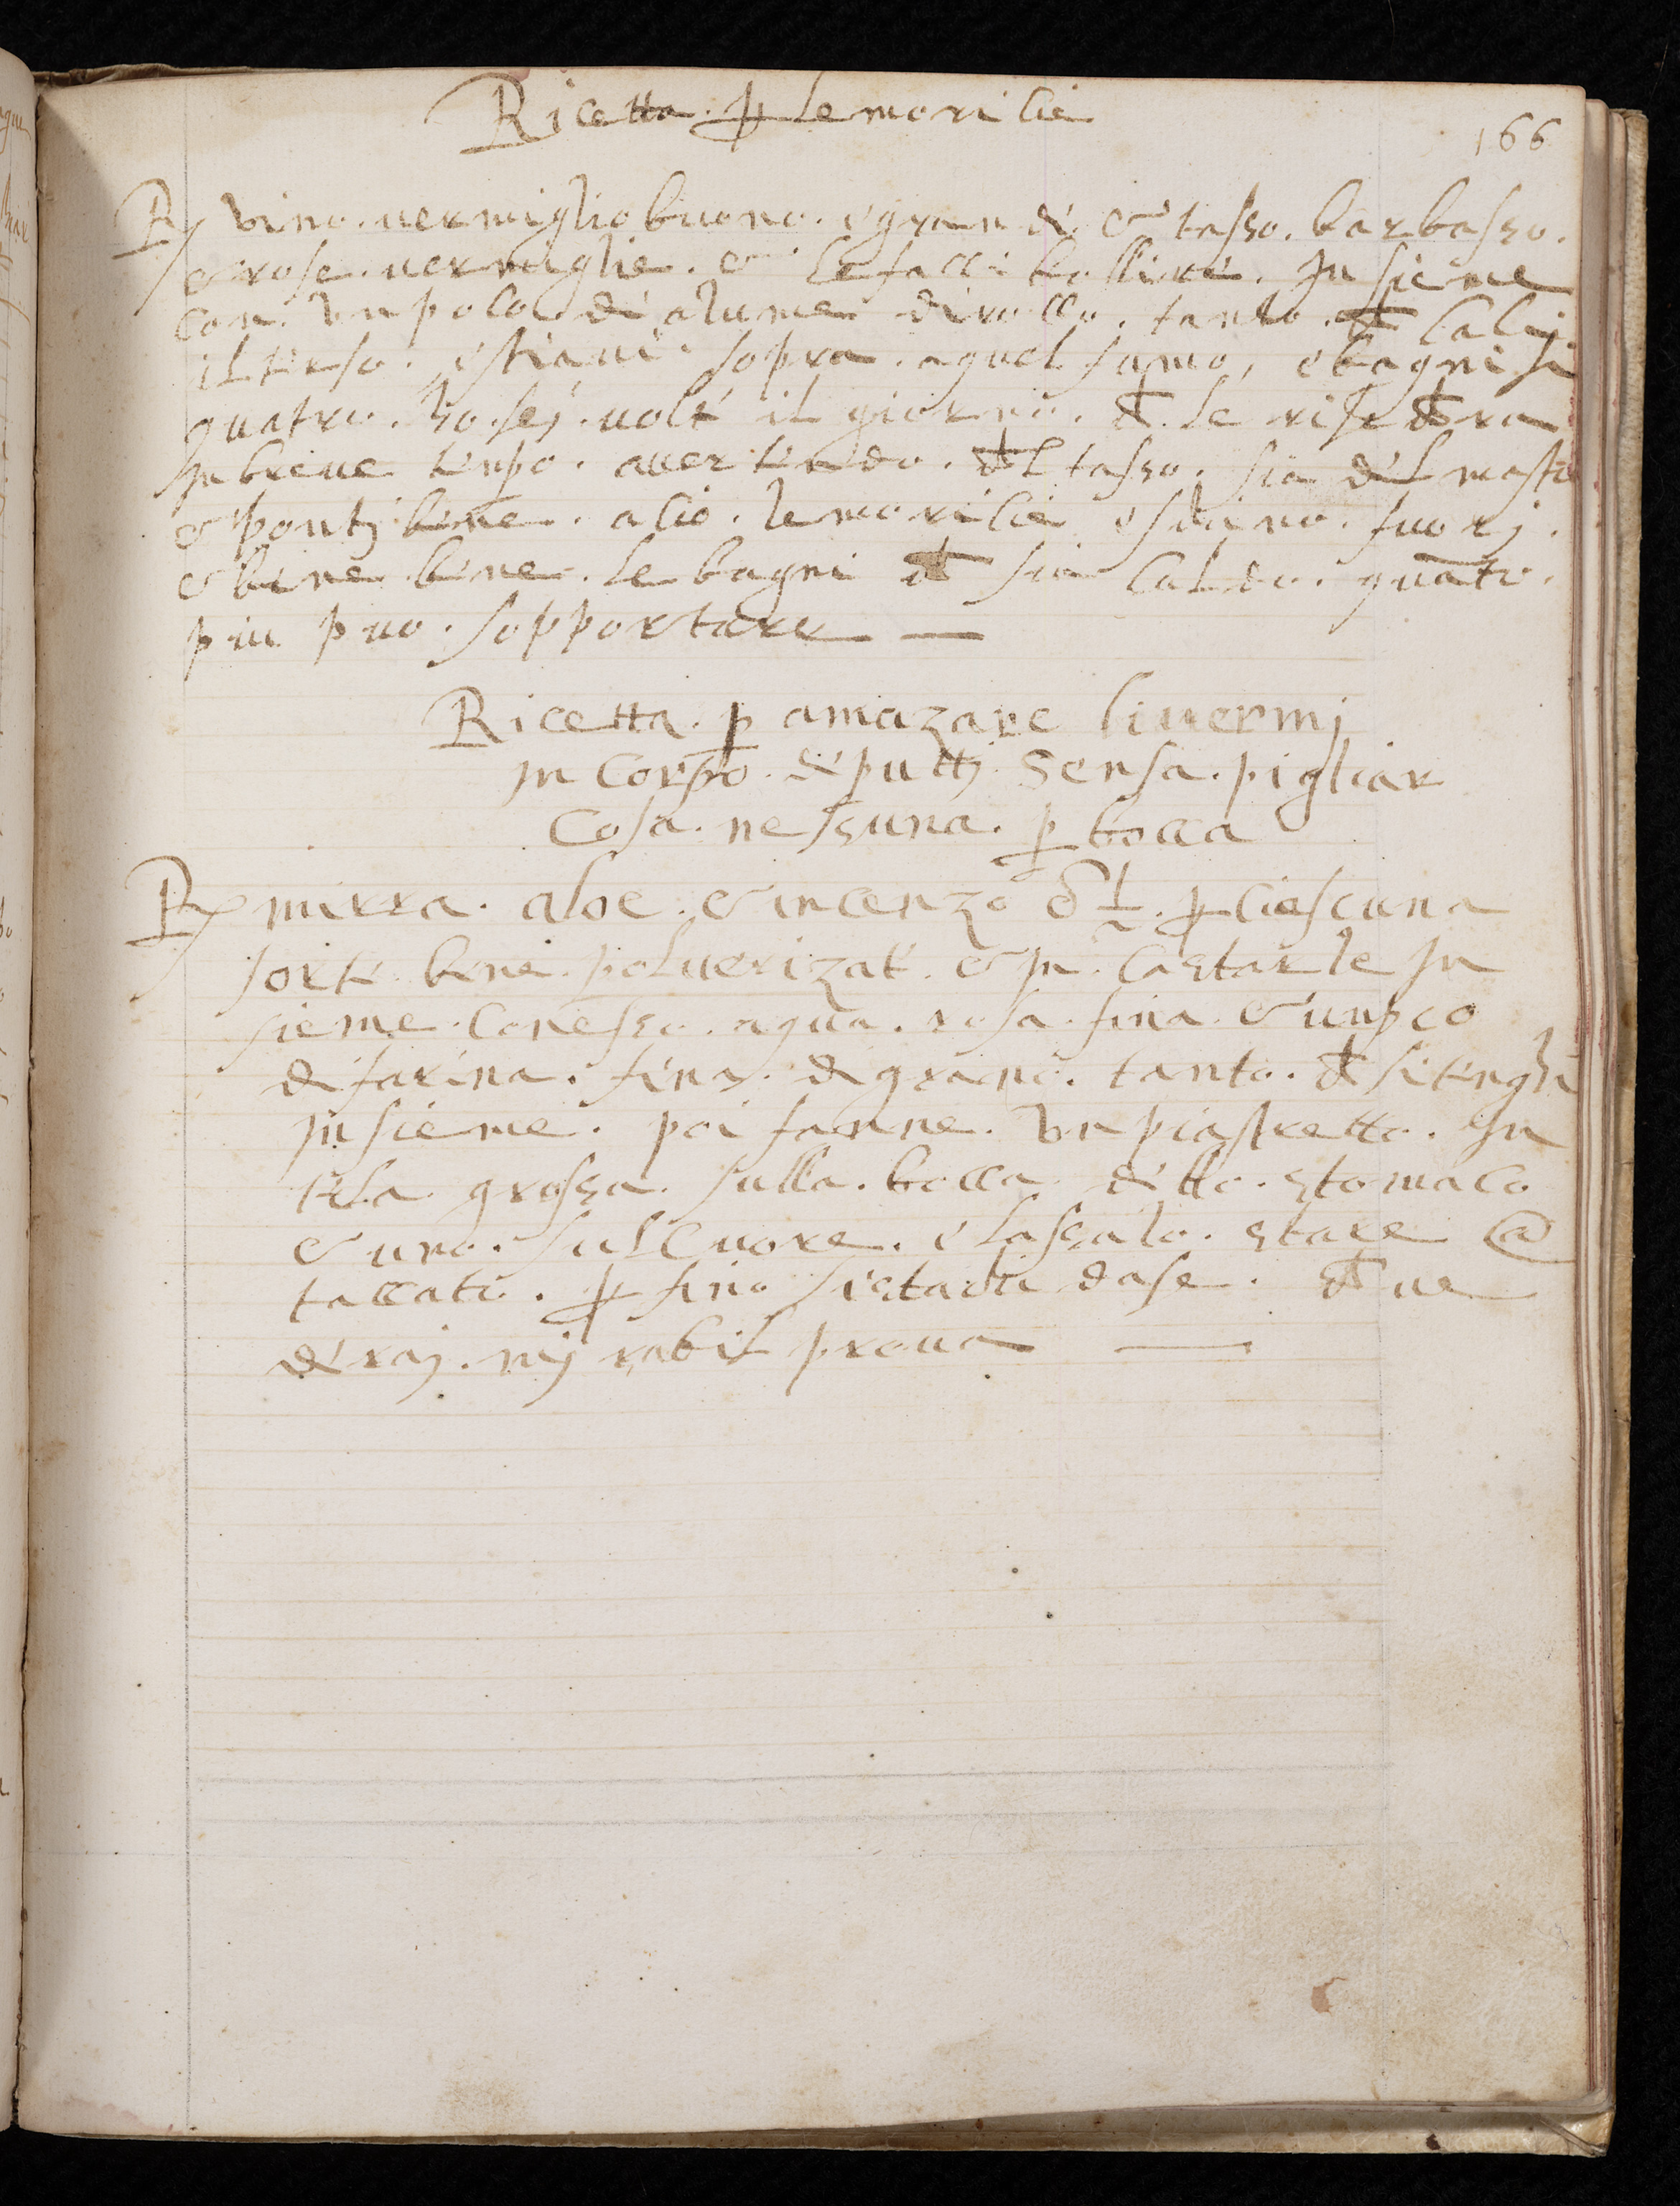 Ricetta. ꝑ le moricie
166
R/ Vino. uermiglio buono. e grande & tasso. barbasso.
& rose. uermiglie. & le facci bollire. In sieme
con. un poco di alume di rocco. tanto. ch cali
il terso. e stiaui. sopra. a quel fumo, e bagnisi
quatro. ho. sej. uolte il giorno. ch. le risechra
In breue tenpo. auertendo. chl tasso. sia del mastio
& pontj bene. a cio. le moricie eschino. fuorj.
& bene bene. le bagni ch sia caldo. quāto.
piu puo. sopportare —
Ricetta. ꝑ amazare li uermj
In Corpo. de puttj. Sensa. pigliar
Cosa. nessuna. ꝑ bocca
R/ mirra. aloe. & incenzo ℥ ½. ꝑ ciascuna
sorte. bene. poluerizate. & In. Castarle In
sieme. Con esso. aqua. rosa. fina. & un pco
di farina. fina. di grano. tanto. ch si tenghi
Insieme. poi fanne. Vn piastretto. In
tela grossa. sulla. bocca. dello. stomaco
& uno. sul Cuore. e lascialo. stare @
taccato. ꝑ fino si stachi da se. ch ue
deraj. mj rabil proua —